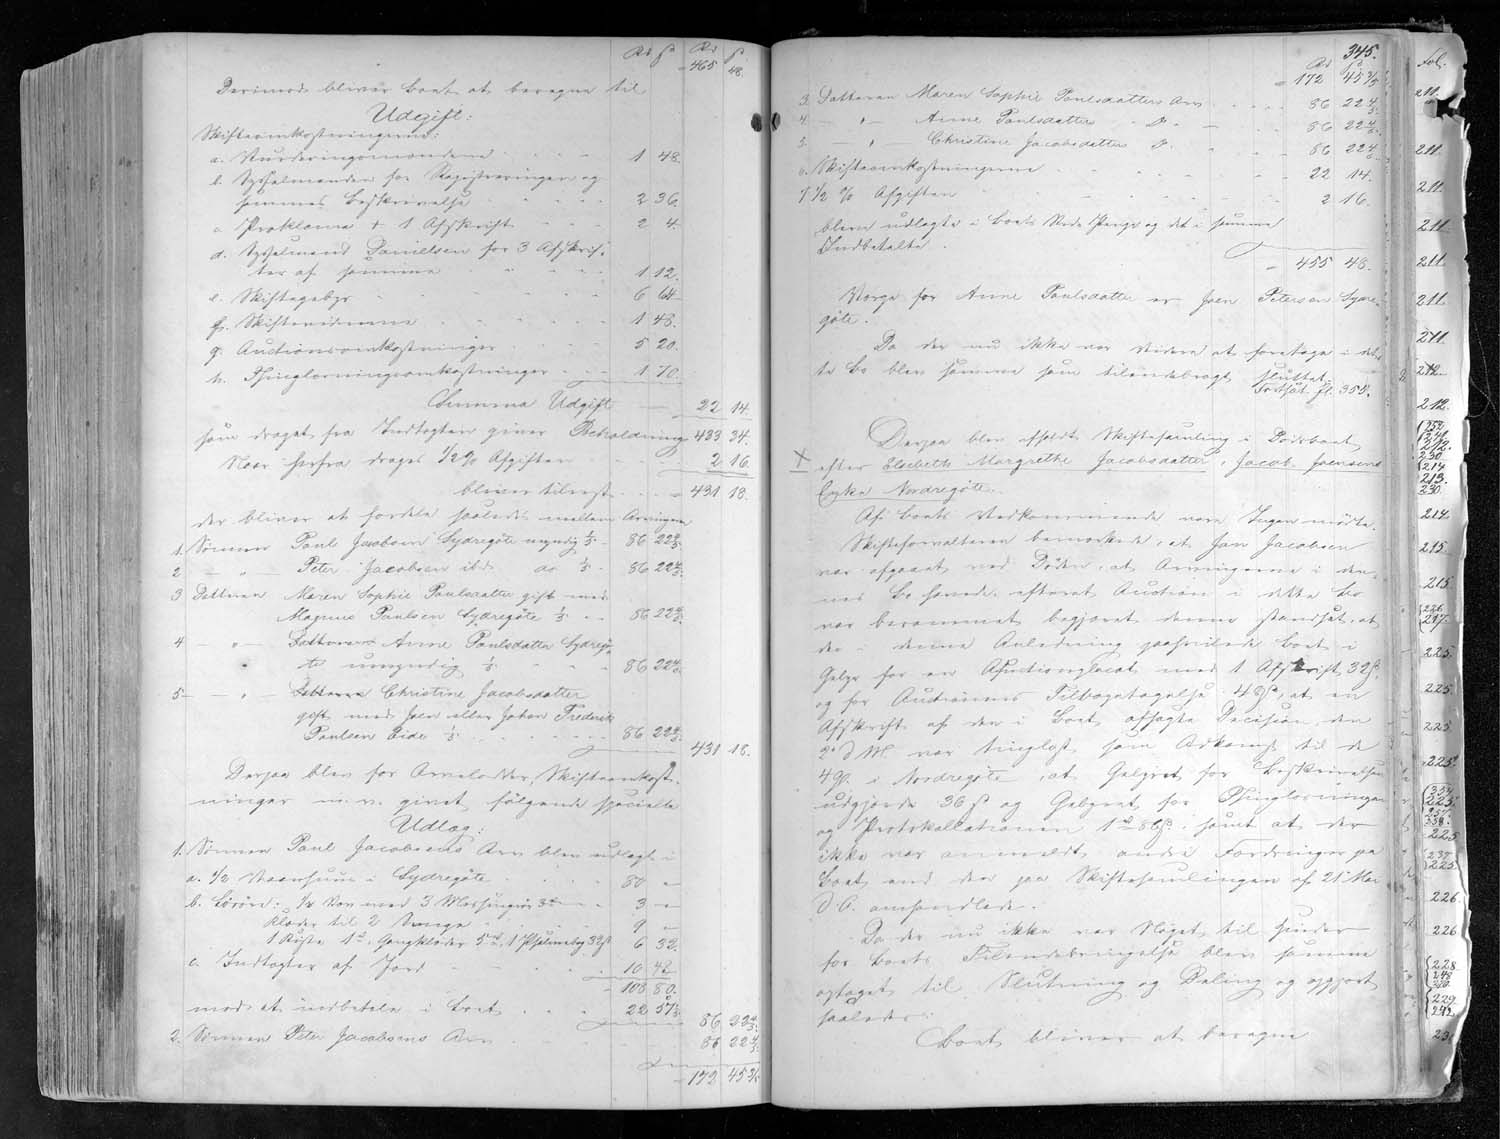 Rd ß Rd ß
465 48.
Derimod bliver Boet at beregne til
Udgift:
Skifteomkostningerne:
a. Vurderingsmændene 1 48.
b. Sysselmanden for Registreringen og
sammes Beskrivelse 2 36.
c. Proklama + 1 Afskrift 2 4.
d. Sysselmand Danielsen for 3 Afskrif-
ter af samme 1 12.
e. Skiftegebyr 6 64
f. Skiftevidnerne 1 48.
g. Auctionsomkostninger 5 20.
h. Thinglæsningsomkostninger 1 70.
Summa Udgift 22 14.
som draget fra Indtægten giver Beholdning 433 34.
Naar herfra drages 1/2 % Afgiften 2 16.
bliver tilrest 431 18.
der bliver at fordele saaledes mellem Arvingerne
1. Sønnen Paul Jacobsen Sydregøte myndig 1/5 86 22 4/5.
2 — " — Peter Jacobsen ibd. do 1/5 86 22 4/5.
3 Datteren Maren Sophie Poulsdatter gift med
Magnus Poulsen Sydregøte 1/5 86 22 4/5.
4 — " — Datteren Anne Poulsdatter Sydregø-
te umyndig 1/5 86 22 4/5.
5 — " — Datteren Christine Jacobsdatter
gift med Joen eller Johan Frederik
Poulsen Eide 1/5 86 22 4/5.
431 18.
Derpaa blev for Arvelodder, Skifteomkost-
ninger m.v. givet følgende specielle
Udlæg:
1. Sønnen Paul Jacobsens Arv blev udlagt i
a. 1/2 Vaaenhuus i Sydregøte 80 "
b. Løsøre: 1/2 Kov med 3 3 "
Klæder til 2 Senge 9 "
1 Kiste 1rd, Gangklæder 5rd, 1 32ß 6 32.
c. Indtægter af Jord 10 42
108 80.
mod at indbetale i Boet 22 57 1/5.
86 22 4/5.
2. Sønnen Peter Jacobsens Arv 86 22 4/5.
172 45 3/5
345.
Rd ß
172 45 3/5
3. Datteren Maren Sophie Poulsdatters Arv 86 22 4/5.
4. — " — Anne Poulsdatter do 86 22 4/5.
5. — " — Christine Jacobsdatter do 86 22 4/5
6. Skifteomkostningerne 22 14.
7 1/2 % Afgiften 2 16.
bleve udlagte i Boets Rede Penge og det i samme
Indbetalte.
455 48.
Værge for Anne Poulsdatter er Joen Petersen Sydre-
gøte.
Da der nu ikke var videre at foretage i det-
te Bo blev samme som tilendebragt sluttet.
Fortsat fl. 355.
Derpaa blev afholdt Skiftesamling i Dødsboet
efter Elsebeth Margrethe Jacobsdatter, Jacob Joensens
Enke Nordregøte.
Af Boets Vedkommende vare Ingen mødte.
Skifteforvalteren bemærkede, at Jan Jacobsen
var afgaaet ved Døden, at Arvingerne i den-
nes Bo havde, efterat Auction i dette Bo
var berammet begjæret denne standset, at
der i denne Anledning paahvilede Boet i
Gebyr for en Auctionsplacat med 1 Afskrift 32ß.
og for Auctionens Tilbagetagelse 48ß at en
Afskrift af den i Boet afsagte Decision, den
2' d M. var tinglæst som Adkomst til de
4 G. i Nordregøte, at Gebyret for Beskrivelsen
udgjorde 36ß og Gebyret for Thinglæsningen
og Protokollationen 1rd 86ß, samt at der
ikke var anmeldt andre Fordringer paa
Boet end der paa Skiftesamlingen af 21' Mai
d. A. omhandlede.
Da der nu ikke var Noget til Hinder
for Boets Tilendebringelse blev samme
optaget til Slutning og Deling og opgjort
saaledes:
Boet bliver at beregne
fol.
211
211.
211.
211.
211.
211.
211.
212
212.
230
214
213.
230
214
215
215
226
217.
225.
225.
225
225
225
225
226
226
228
229